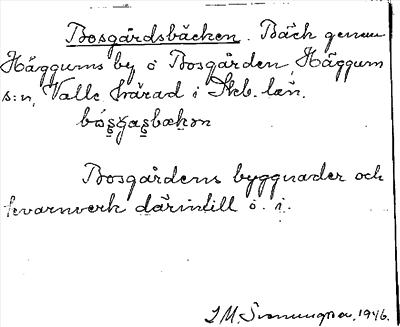 Bosgårdsbäcken. Bäck genom
Häggums by o Bosgården, Häggum
s:n, Valle härad i Skb. län.
bós̱g̱as̱bæḵən
Bosgårdens byggnader och
kvarnverk därintill ö. i.
J M. Svennungsson. 1946.